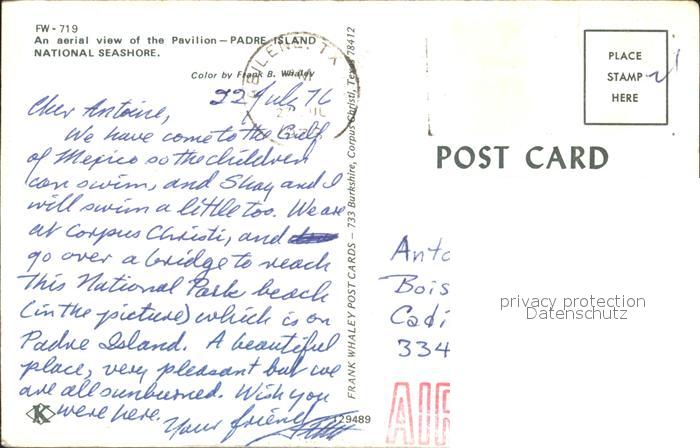 FW-719
An aerial view of the Pavilion—PADRE ISLAND
NATIONAL SEASHORE.
Color by Frank B. Whaley
22 July 76
Cher Antoine,
We have come to the Gulf
of Mexico so the children
can swim, and Shay and I
will swim a little too. We are
at Corpus Christi, and
go over a bridge to reach
this National Park beach
(in the picture) which is on
Padre Island. A beautiful
place, very pleasant but we
are all sunburned. Wish you
were here.
Your friend
K
FRANK WHALEY POST CARDS — 733 Burkshire, Corpus Christi, Texas 78412
129489
PLACE
STAMP
HERE
POST CARD
Anto
Bois
Cadi
334
privacy protection
Datenschutz
AIR